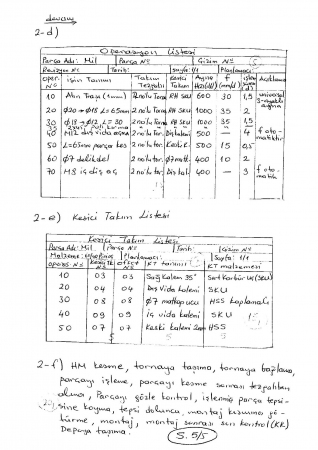 devamı
2-d)
Operasyon Listesi
Parça Adı: Mil Parça No Çizim No
Revizyon No Tarih: Sayfa: 1/1 Planlamacı:
oper. No işin Tanımı Takım Tezgahı Kesici Takım f (mm/d) Açıklama
10 Alın Traşı (1mm) 2 no'lu Torna 600 30 1,5 üniversal
20 Φ20→Φ18 L=65mm 2 no'lu Tor. 1000 35 2
30 Φ18→Φ12 L=30 2 no'lu Tor. 1000 35 1,5
40 M12 diş vida açma 2 no'lu tor. Diş kaleni 500 — 4 f oto-matik
50 L=65mm parça kes 2 no'lu tor. Kesk.k. 500 15 1,5
60 Φ7 delik del 2 no'lu tor. Φ7 matk. 400 10 2
70 M8 iç diş aç 2 no'lu tor. Diş kal. 400 — 3 f oto-matik
2-e) Kesici Takım Listesi
Kesici Takım Listesi
Parça Adı: Mil Parça No Tarih: Çizim No
Malzeme: Planlamacı: Sayfa: 1/1
operas. No ofset No KT tanımı KT malzemesi
10 03 03 Sağ Kalem 35° Sert Karbür uç (SKU)
20 04 04 Dış Vida kaleni SKU
30 08 08 Φ7 matkapucu HSS kaplamalı
40 09 09 iç vida kaleni SKU
50 07 07 Keski kaleni 2mm HSS
2-f) HM kesme, tornaya taşıma, tornaya bağlama,
parçayı işleme, parçayı kesme sonrası tezgahtan
alma, Parçayı gözle kontrol, işlenmiş parça tepsi-
sine koyma, tepsi dolunca, montaj kısmına gö-
türme, montaj, montaj sonrası son kontrol (KK)
Depoya taşıma.
S. 5/5